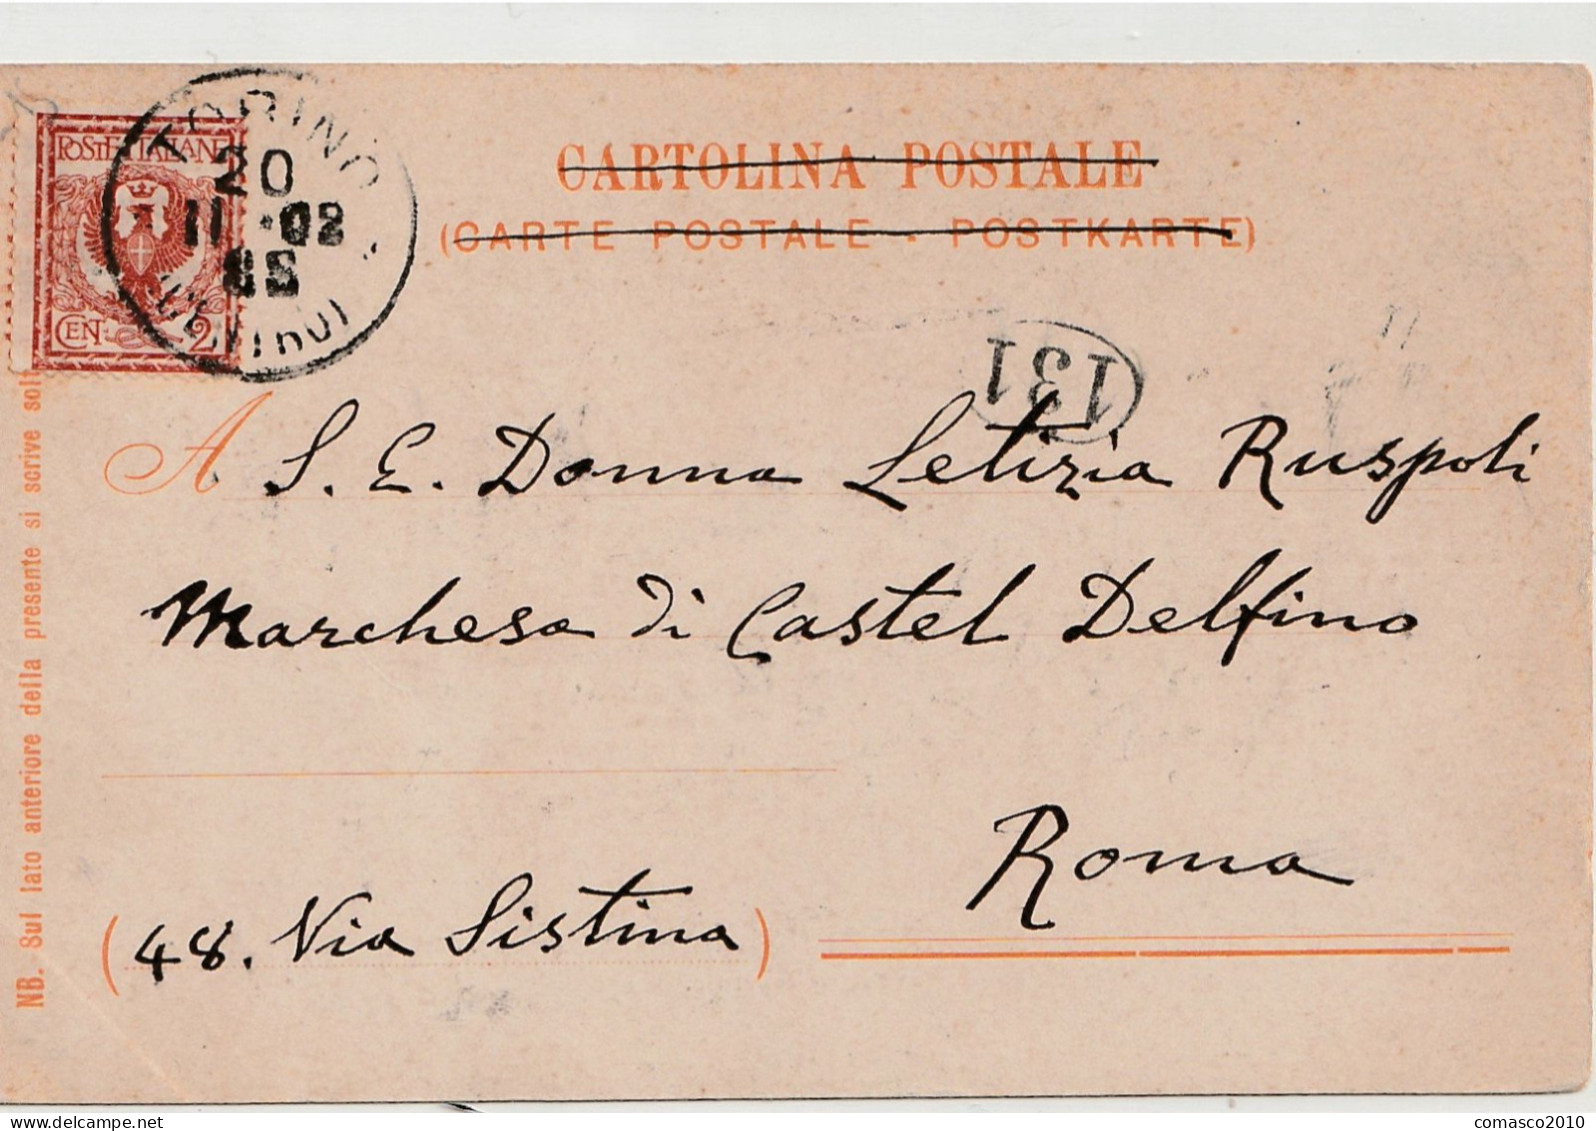 POSTE ITALIANE
CENT. 2
TORINO
20
11 -02
8S
CARTOLINA POSTALE
(CARTE POSTALE - POSTKARTE)
131
A S. E. Donna Letizia Ruspoli
Marchesa di Castel Delfino
Roma
(48. Via Sistina)
NB. Sul lato anteriore della presente si scrive
comasco2010